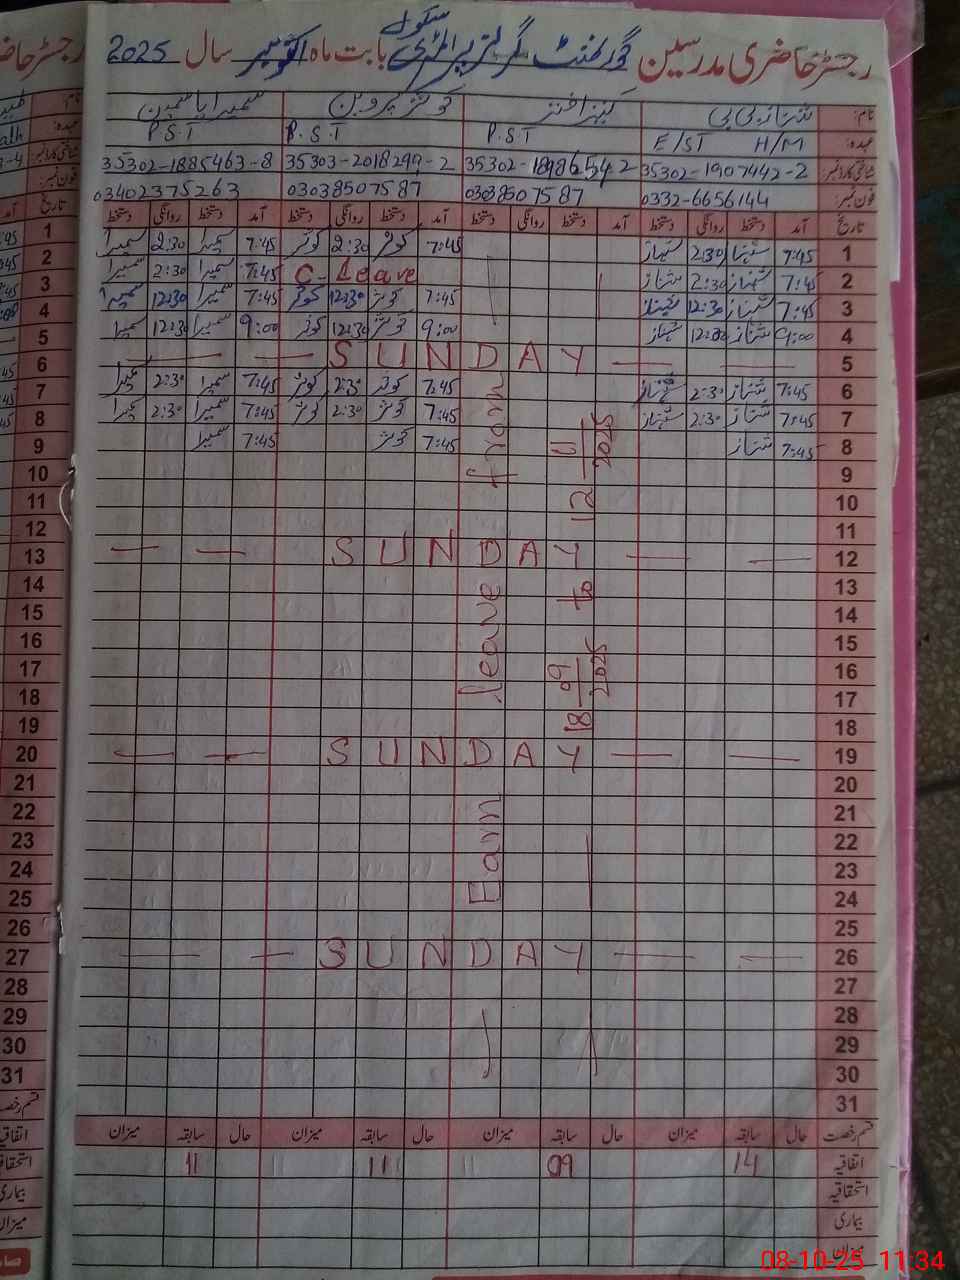 رجسٹر حاضری مدرسین گورنمنٹ گرلز پرائمری سکول بابت ماہ اکتوبر سال 2025
نام: شہناز بی بی کنیز کوثر پروین سمیرا یاسمین
عہدہ: E/ST H/M P.S.T P.S.T P.S.T
شناختی کارڈ نمبر 35302-1907442-2 35303-2018299-2 35302-1885463-8
فون نمبر: 0332-6656144 03038507587 03038507587 03402375263
تاریخ آمد دستخط روانگی دستخط آمد دستخط روانگی دستخط آمد دستخط روانگی دستخط آمد دستخط روانگی دستخط تاریخ
1 7:45 شہناز 2:30 شہناز 7:45 کوثر 2:30 کوثر 7:45 سمیرا 2:30 سمیرا 1
2 7:45 شہناز 2:30 شہناز C-Leave 7:45 سمیرا 2:30 سمیرا 2
3 7:45 شہناز 12:30 شہناز 7:45 کوثر 12:30 کوثر 7:45 سمیرا 12:30 سمیرا 3
4 9:00 شہناز 12:30 شہناز 9:00 کوثر 12:30 کوثر 9:00 سمیرا 12:30 سمیرا 4
5 SUNDAY 5
6 7:45 شہناز 2:30 شہناز 7:45 کوثر 2:30 کوثر 7:45 سمیرا 2:30 سمیرا 6
7 7:45 شہناز 2:30 شہناز 7:45 کوثر 2:30 کوثر 7:45 سمیرا 2:30 سمیرا 7
8 7:45 شہناز 7:45 کوثر 7:45 سمیرا 8
9 9
10 10
11 11
12 SUNDAY 12
13 13
14 14
15 15
16 16
17 17
18 18
19 SUNDAY 19
20 20
21 21
22 22
23 23
24 24
25 25
26 SUNDAY 26
27 27
28 28
29 29
30 30
31 31
Earn leave from
18-09-2025 to 12-11-2025
قسم رخصت حال سابقہ میزان حال سابقہ میزان حال سابقہ میزان حال سابقہ میزان قسم رخصت
اتفاقیہ 14 09 11 11 اتفاقیہ
استحقاقیہ
بیماری بیماری
میزان میزان
08-10-25 11:34